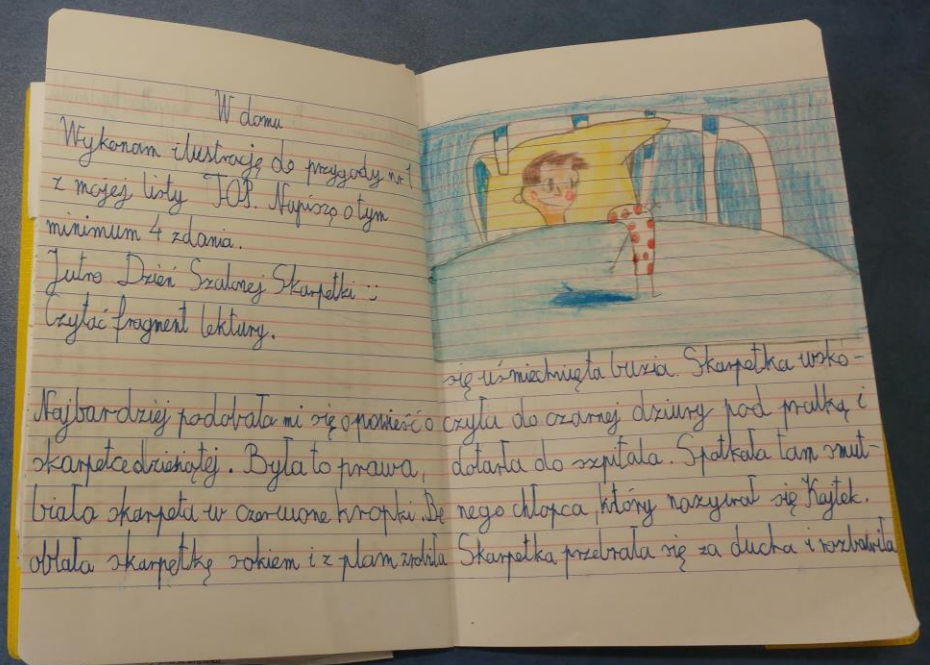 W domu
Wykonam ilustrację do przygody nr 1
z mojej listy TOP. Napiszę o tym
minimum 4 zdania.
Jutro Dzień Szalonej Skarpetki :)
Czytać fragment lektury.
Najbardziej podobała mi się opowieść o
skarpetce dziesiątej. Była to prawa,
biała skarpeta w czerwone kropki. Be
oblała skarpętkę sokiem i z plam zrobiła
się uśmiechnięta buzia. Skarpetka wsko-
czyła do czarnej dziury pod pralką i
dotarła do szpitala. Spotkała tam smut-
nego chłopca, który nazywał się Kajtek.
Skarpetka przebrała się za ducha i rozbawiła